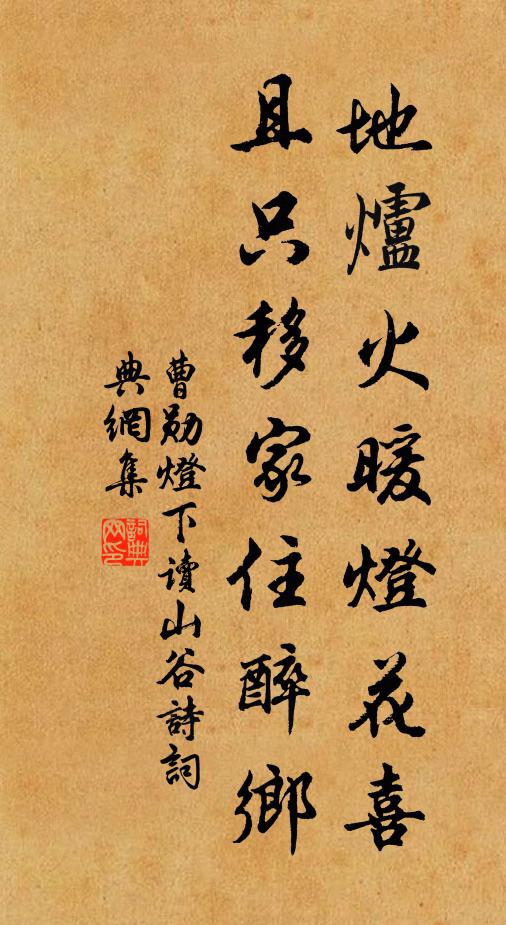 地爐火暖燈花喜
且只移家住醉鄉
曹勛燈下读山谷詩詞
典網集
詞典網印